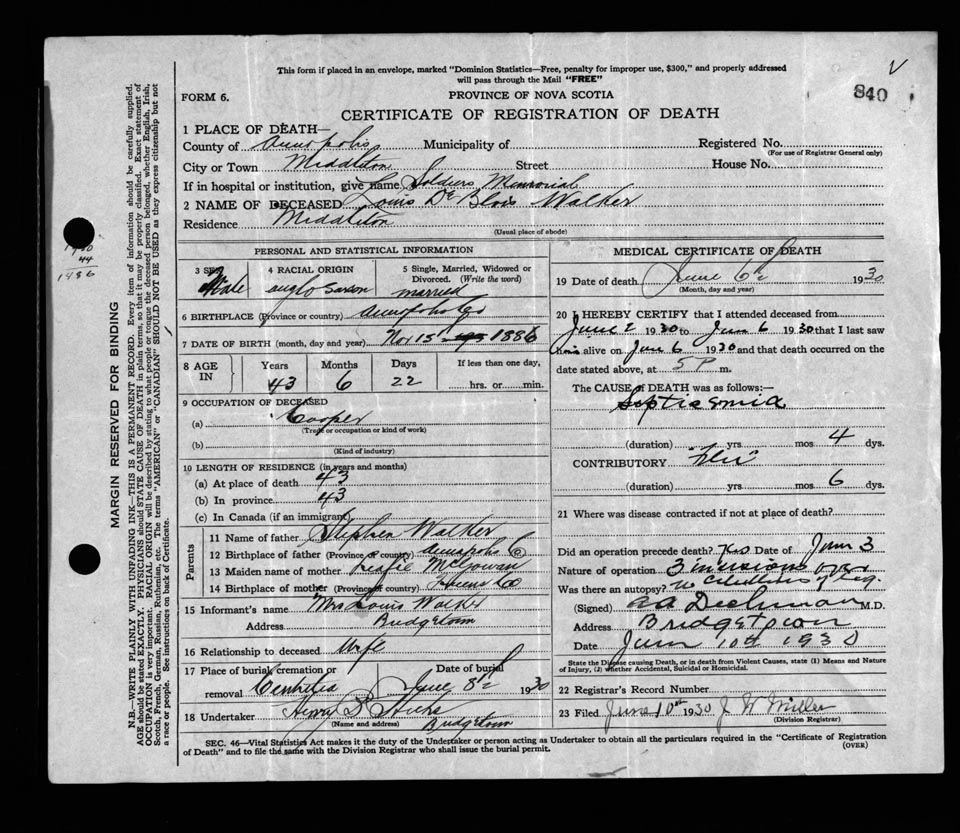 This form if placed in an envelope, marked "Dominion Statistics—Free, penalty for improper use, $300," and properly addressed
will pass through the Mail "FREE"
840
FORM 6.
PROVINCE OF NOVA SCOTIA
CERTIFICATE OF REGISTRATION OF DEATH
1 PLACE OF DEATH—
County of Annapolis Municipality of Registered No.
(For use of Registrar General only)
City or Town Middleton Street House No.
If in hospital or institution, give name Soldiers Memorial
2 NAME OF DECEASED Louis De Blois Walker
Residence Middleton
(Usual place of abode)
PERSONAL AND STATISTICAL INFORMATION
3 SEX Male
4 RACIAL ORIGIN anglo Saxon
5 Single, Married, Widowed or Divorced. (Write the word) married
6 BIRTHPLACE (Province or country) Annapolis Co
7 DATE OF BIRTH (month, day and year) Nov 15 1886
8 AGE IN Years 43 Months 6 Days 22 If less than one day, hrs. or min.
9 OCCUPATION OF DECEASED
(a) Cooper
(Trade or occupation or kind of work)
(b)
(Kind of industry)
10 LENGTH OF RESIDENCE (in years and months)
(a) At place of death 43
(b) In province 43
(c) In Canada (if an immigrant)
Parents
11 Name of father Stephen Walker
12 Birthplace of father (Province or country) Annapolis Co
13 Maiden name of mother McGowan
14 Birthplace of mother (Province or country)
15 Informant's name Mrs Louis Walker
Address Bridgetown
16 Relationship to deceased Wife
17 Place of burial, cremation or removal Centrelea Date of burial June 8th 1930
18 Undertaker Hicks
(Name and address) Bridgetown
MEDICAL CERTIFICATE OF DEATH
19 Date of death June 6th 1930
(Month, day and year)
20 I HEREBY CERTIFY that I attended deceased from
June 2 1930 to June 6 1930 that I last saw
him alive on June 6 1930 and that death occurred on the
date stated above, at 5 P m.
The CAUSE OF DEATH was as follows:—
Septicemia
(duration) yrs mos 4 dys.
CONTRIBUTORY
(duration) yrs mos 6 dys.
21 Where was disease contracted if not at place of death?
Did an operation precede death? Yes Date of June 3
Nature of operation 3 incisions
Was there an autopsy? no
(Signed) M.D.
Address Bridgetown
Date June 10th 1930
State the Disease causing Death, or in death from Violent Causes, state (1) Means and Nature
of Injury, (2) whether Accidental, Suicidal or Homicidal.
22 Registrar's Record Number
23 Filed June 10th 1930 J W Miller
(Division Registrar)
SEC. 46—Vital Statistics Act makes it the duty of the Undertaker or person acting as Undertaker to obtain all the particulars required in the "Certificate of Registration
of Death" and to file the same with the Division Registrar who shall issue the burial permit.
(OVER)
MARGIN RESERVED FOR BINDING
N.B.—WRITE PLAINLY WITH UNFADING INK—THIS IS A PERMANENT RECORD. Every item of information should be carefully supplied.
AGE should be stated EXACTLY. PHYSICIANS should STATE CAUSE OF DEATH in plain terms, so that it may be properly classified. Exact statement of
OCCUPATION is very important. RACIAL ORIGIN will be described by stating to what people or tongue the deceased person belonged, whether English, Irish,
Scotch, French, German, Russian, Ruthenian, etc. The terms "AMERICAN" or "CANADIAN" SHOULD NOT BE USED as they express citizenship but not
a race or people. See instructions on back of Certificate.
44
1886